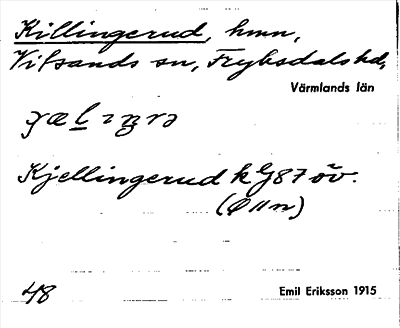 Killingerud, hmn,
Vitsands sn, Fryksdals hd,
Värmlands län
Kjellingerud k G87 öv.
48
Emil Eriksson 1915